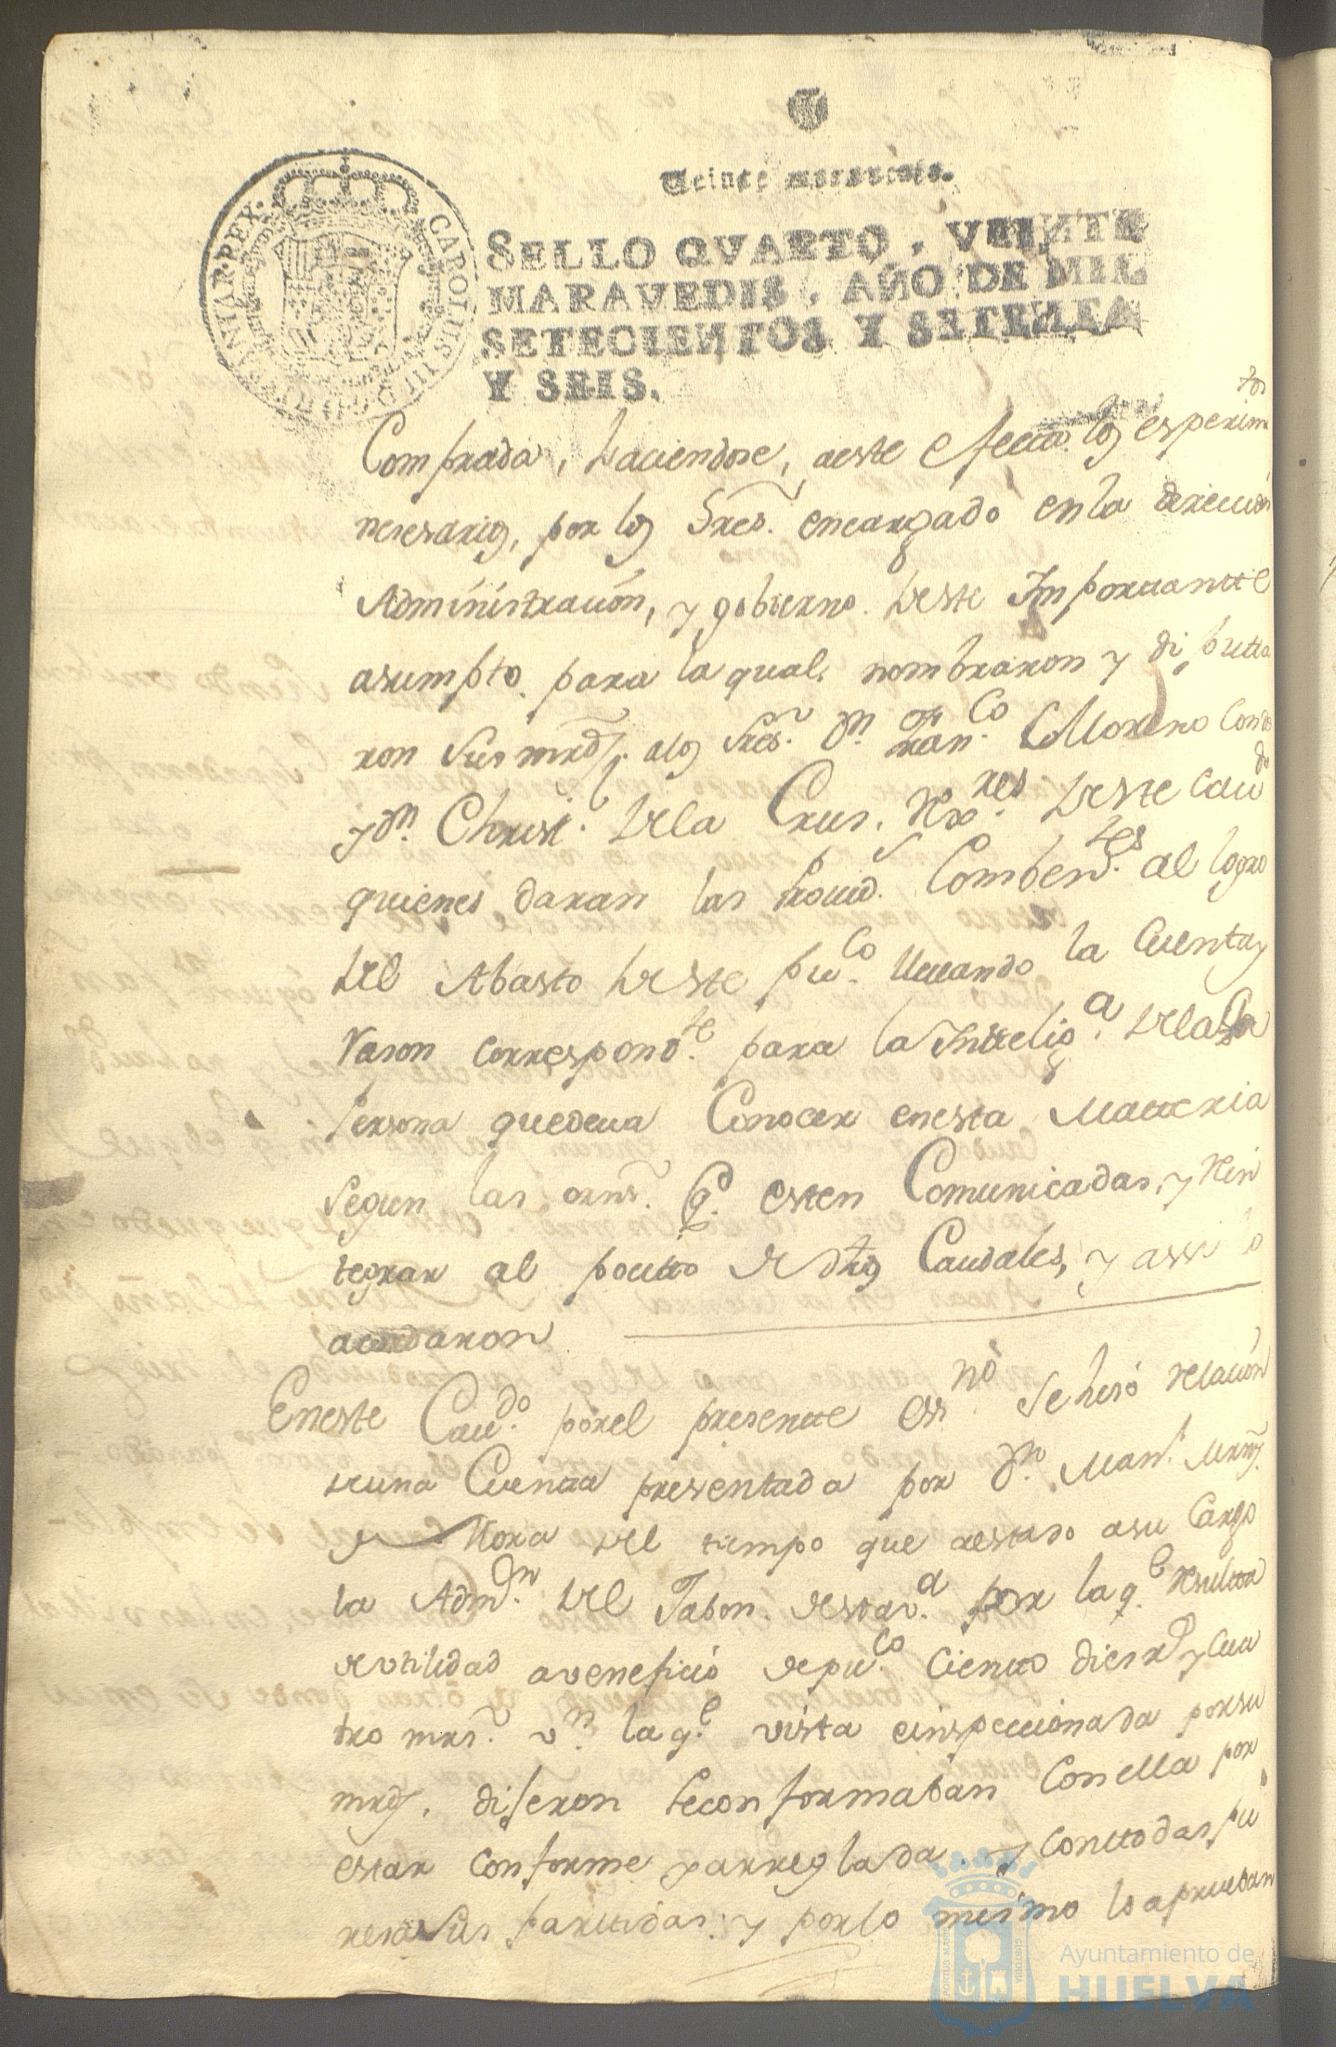 Veinte maravedis.
SELLO QVARTO, VEINTE
MARAVEDIS, AÑO DE MIL
SETECIENTOS Y SETENTA
Y SEIS.
CAROLUS III D G HISPANIAR REX
Comprada, haciendose, aeste efecto los esperimtos
nesesarios, por los Sres. encargado enla direccion
Administracion, y gobierno deste Importantte
asumpto para la qual nombraron y diputta
ron Sus mrds. alos Sres. Dn. Franco. Moreno Conde
y Dn. Christ. dela Crus, Rexres. deste Cavdo
quienes daran las provid. Combentes. al logro
del Abasto deste puco. llevando la Cuenta y
rason correspondte. para la Inteliga. dela
Persona quedeva Conocer enesta Matteria
segun las orns. qe. esten Comunicadas, y Rein
tegrar al pocitto de dhos Caudales, y assi lo
acordaron
Eneste Cavdo. porel presentte essno. se hisó relación
deuna Cuenta presentada por Dn. Manl. Mrnz.
Mora del tiempo que aestado asu Cargo
la Admon. del Jabon destava. por la qe. resulta
de utilidad a veneficio depuco. Ciento dies rs. y cua
tro mrs. vn. la qe. vista einspeccionada por su
mrds. diseron seconformaban Conella por
estar conforme y arreglada, y conttodas pu
resa sus partidas; y porlo mismo lo aprueban
Ayuntamiento de
HUELVA